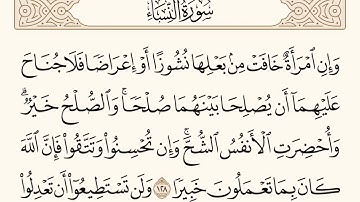 سُورَةُ النِّسَاءِ
وَإِنِ ٱمْرَأَةٌ خَافَتْ مِنۢ بَعْلِهَا نُشُوزًا أَوْ إِعْرَاضًا فَلَا جُنَاحَ
عَلَيْهِمَآ أَن يُصْلِحَا بَيْنَهُمَا صُلْحًا ۚ وَٱلصُّلْحُ خَيْرٌ ۗ
وَأُحْضِرَتِ ٱلْأَنفُسُ ٱلشُّحَّ ۚ وَإِن تُحْسِنُوا۟ وَتَتَّقُوا۟ فَإِنَّ ٱللَّهَ
كَانَ بِمَا تَعْمَلُونَ خَبِيرًا ١٢٨ وَلَن تَسْتَطِيعُوٓا۟ أَن تَعْدِلُوا۟